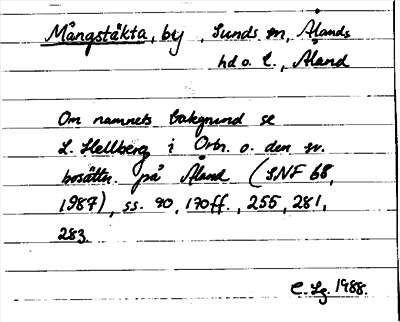 Mångstäkta, by, Sunds sn, Ålands
hd o. l., Åland
Om namnets bakgrund se
L. Hellberg i Ortn. o. den sv.
bosättn. på Åland (SNF 68,
1987), ss. 90, 170ff., 255, 281,
283.
C. Lg. 1988.